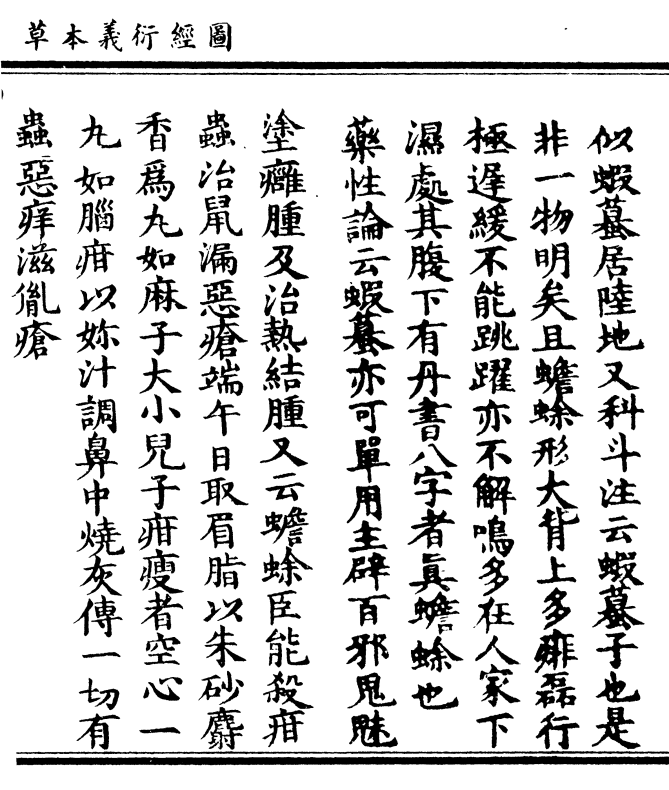 圖經衍義本草
似蝦蟇居陸地又科斗注云蝦蟇子也是
非一物明矣且蟾蜍形大背上多痱磊行
極遲緩不能跳躍亦不解鳴多在人家下
濕處其腹下有丹書八字者真蟾蜍也
藥性論云蝦蟇亦可單用主辟百邪鬼魅
塗癰腫及治熱結腫又云蟾蜍臣能殺疳
蟲治鼠漏惡瘡端午日取眉脂以朱砂麝
香為丸如麻子大小兒子疳瘦者空心一
丸如腦疳以妳汁調鼻中燒灰傅一切有
蟲惡痒滋胤瘡